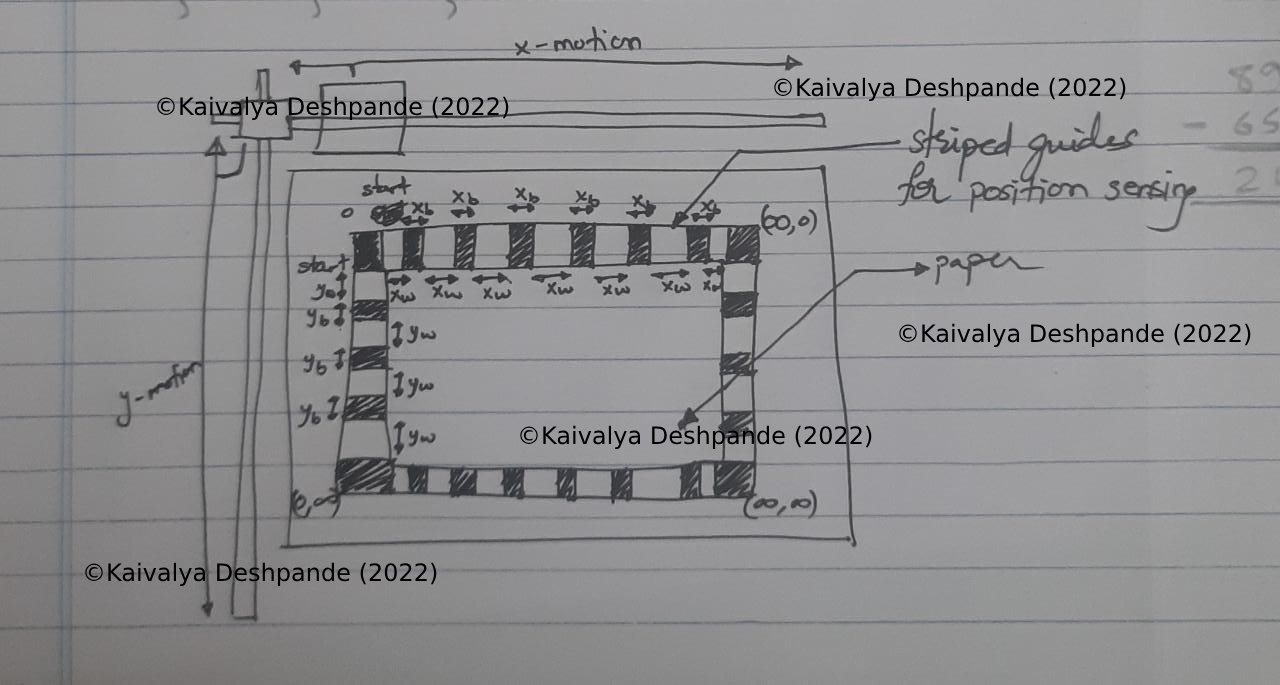 x-motion
©Kaivalya Deshpande (2022)
©Kaivalya Deshpande (2022)
89
- 65
2
striped guides
for position sensing
start
0
xb xb xb xb xb xb
(∞,0)
start
xw xw xw xw xw xw xw
paper
yw
yb
yw
©Kaivalya Deshpande (2022)
yb
yw
y-motion
yb
yw
©Kaivalya Deshpande (2022)
(0,∞)
(∞,∞)
©Kaivalya Deshpande (2022)